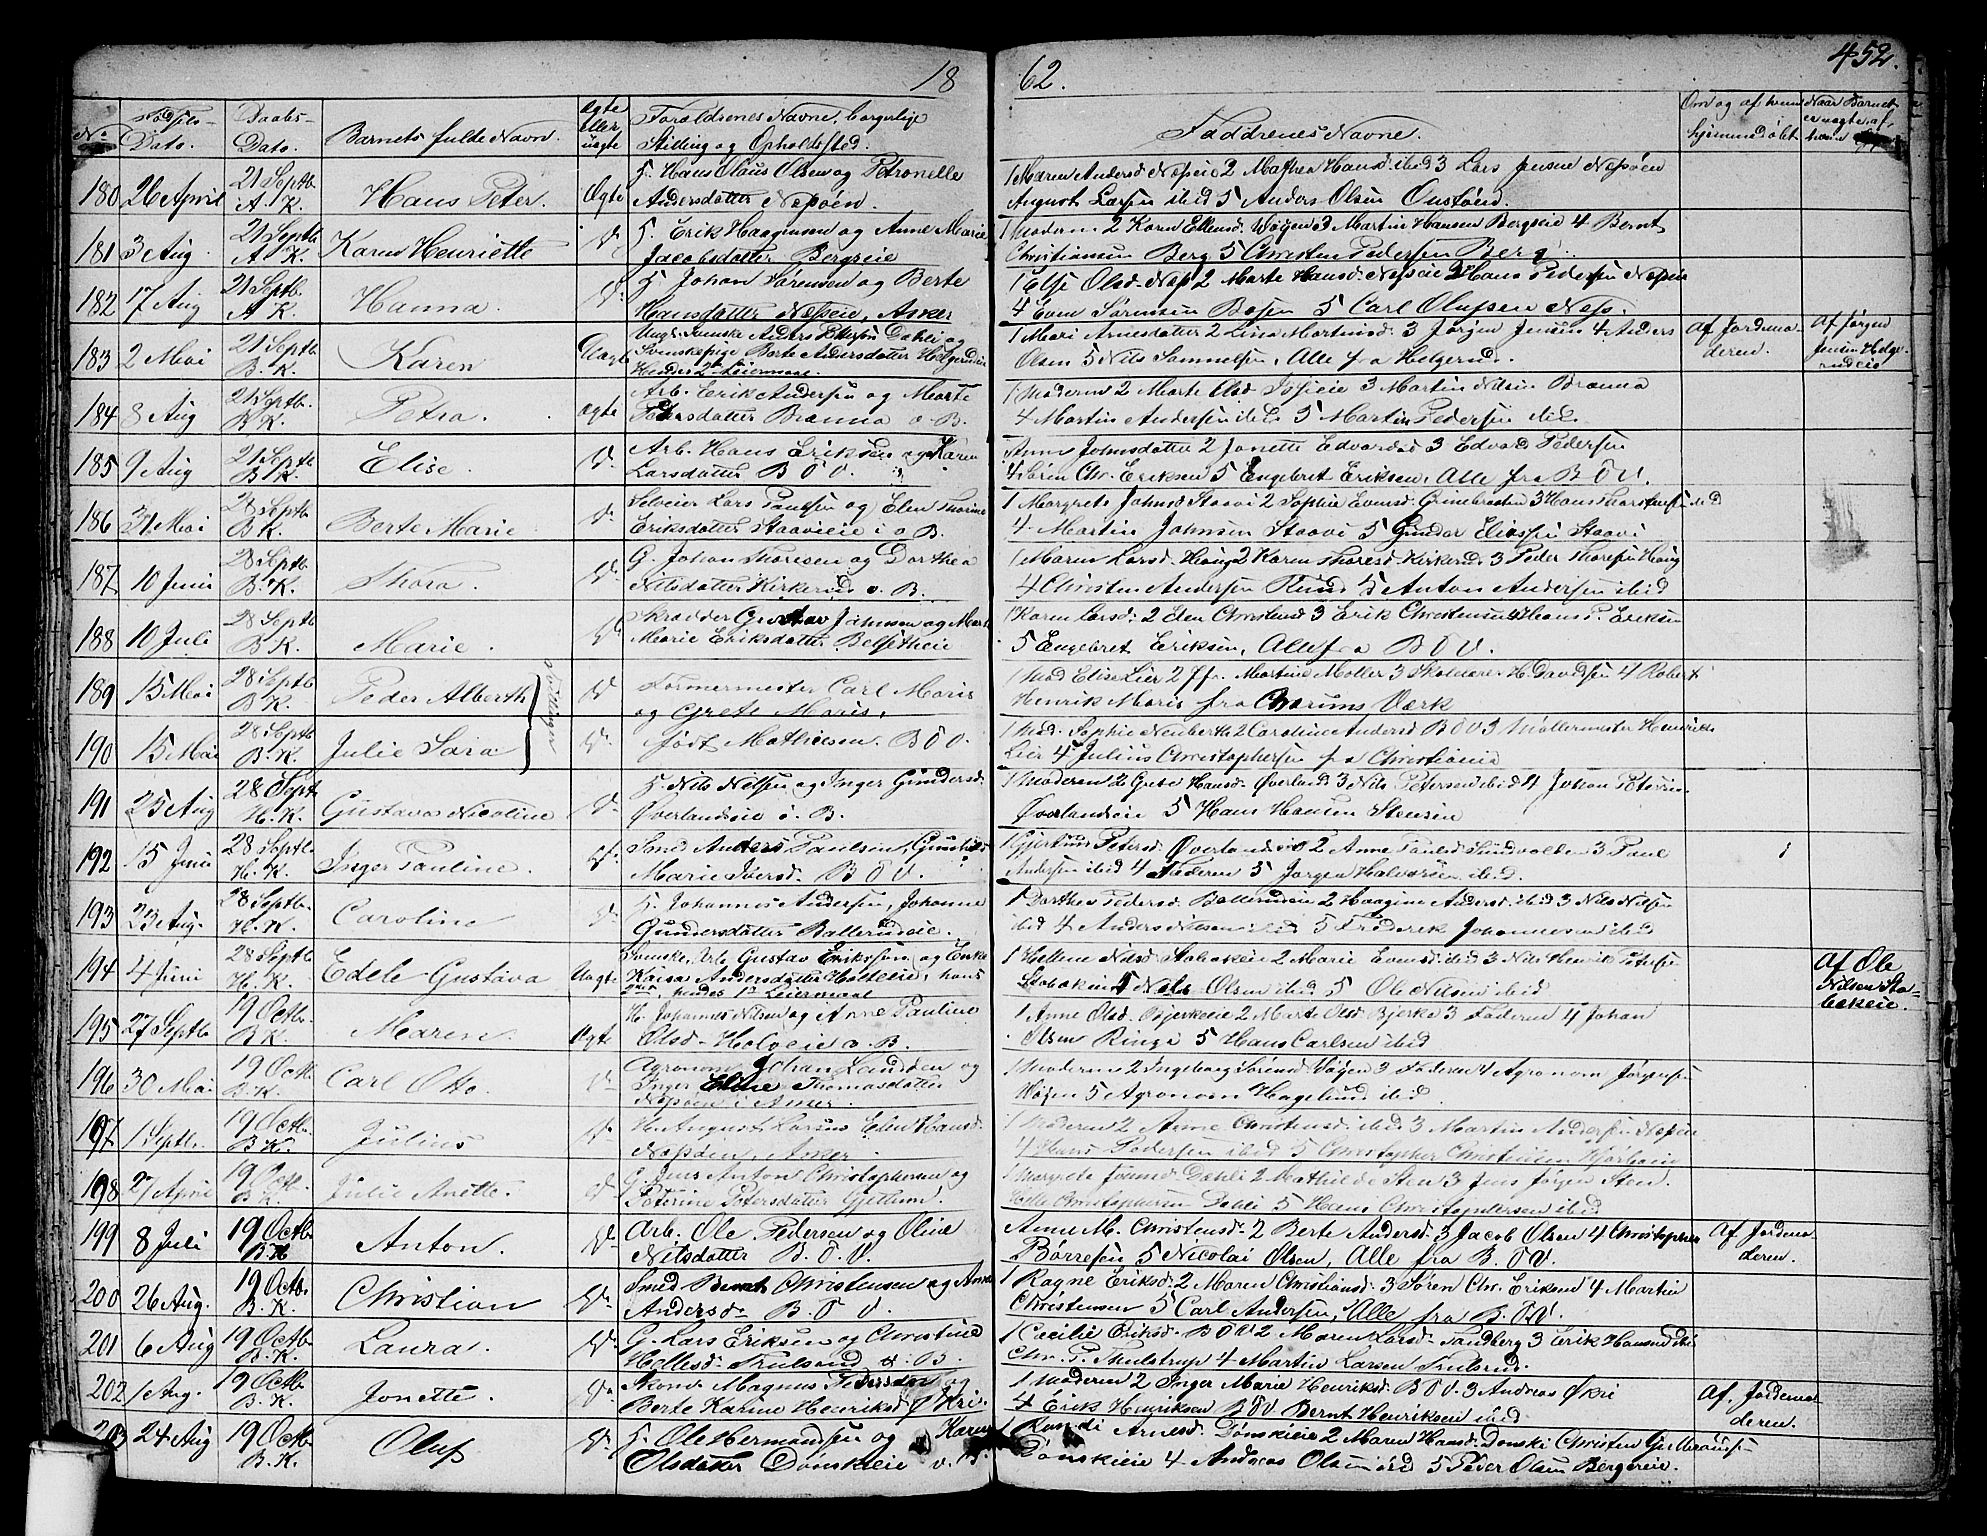 18 62. 452.
No. Fødsels-Dato. Daabs-Dato. Barnets fulde Navn. Ægte eller uægte Forældrenes Navne, borgerlige Stilling og Opholdssted. Faddrenes Navne. Om og af hvem hjemmedøbt
180 26 April 21 Septb. A. K. Hans Peter. Ægte S. Hans Olaus Olsen og Petronelle
Andersdatter Næsøen. 1 Maren Andersd Næseie 2 Mathea Hansd. ibid 3 Lars Jensen Næsøen
August Larsen ibid 5 Anders Olsen Onstøen.
181 3 Aug. 21 Septb. A. K. Karen Henriette D. S. Erik Haagensen og Anne Marie
Jacobsdatter Bergseie 1 Moderen 2 Karen Ellensd. Wøyen 3 Martin Hansen Bergseie 4 Bernt
Christiansen Berg 5 Christen Pedersen Berg.
182 17 Aug 21 Septb. A. K. Hanna. D. S. Johan Sørensen og Berte
Hansdatter Næseie, Asker 1 Else Olsd. Næs 2 Marte Hansd. Næseie 3 Hans Pedersen Næseie
4 Even Sørensen Bosen 5 Carl Olufsen Næs.
183 2 Mai 21 Septb. B. K. Karen Uægte Ungk. Svenske Anders Eriksen Dahli og
Svenskepige Berte Andersdatter Helgerudeie
Hendes 2det Leiermaal 1 Mari Arnesdatter 2 Lina Martinsd. 3 Jørgen Jensen 4 Anders
Olsen 5 Nils Samuelsen, Alle fra Helgerud. Af Jordemoderen. Af Jørgen
Jensen Helgerudeie
184 8 Aug 21 Septb. B. K. Petra. ægte Arb. Erik Andersen og Marte
Pedersdatter Brænna v. B. 1 Moderen 2 Marte Olsd. 3 Martin Nilsen Brænna
4 Martin Andersen ibid 5 Martin Pedersen ibid
185 9 Aug 21 Septb. B. K. Elise. D. Arb. Hans Eriksen og Karen
Larsdatter B O V. Anne Johnsdatter 2 Janette Edvardsd 3 Edvard Pedersen
4 Søren Chr. Eriksen 5 Engebret Eriksen, Alle fra B O V.
186 31 Mai 28 Septb B. K. Berte Marie D. Selveier Lars Paulsen og Elen Thorine
Eriksdatter Staavieie i o B. 1 Margrete Johnsd Staavi 2 Sophie Evensd. Grinebraaten 3 Hans ibid
4 Martin Johnsen Staavi 5 Gunder Eliassen Staavi
187 10 Juni 28 Septb B. K. Thora. D. G. Johan Thoresen og Dorthea
Nilsdatter Kirkerud v. B. 1 Maren Larsd. Haug 2 Karen Thoresd. Kirkerud 3 Peder Thoresen Haug
4 Christen Andersen Rund 5 Anton Andersen ibid
188 10 Juli 28 Septb B. K. Marie. D. Skrædder Gustav Johnsen og Marte
Marie Eriksdatter Belsetheie 1 Karen Larsd. 2 Elen Christensd 3 Erik Christensen 4 Hans P. Eriksen
5 Engebret Eriksen, Alle fra B O V.
189 15 Mai 28 Septb B. K. Peder Alberth Tvillinger D. Formermester Carl Maris
og Grete Maris, 1 Mad Elise Lier 2 Jfr. Martine Møller 3 Skolelærer H. Davidsen 4 Robert
Henrik Maris fra Bærums Værk
190 15 Mai 28 Septb B. K. Julie Sara D. født Mathiesen. B O V. 1 Mad. Sophie Neuberth 2 Caroline Andersd B O V 3 Møllermester Henrik
Lier 4 Julius Christophersen fra Christiania
191 25 Aug 28 Sept H. K. Gustava Nicoline D. S. Nils Nilsen og Inger Gundersd.
Øverlandseie o. B. 1 Moderen 2 Grete Hansd. Øverland 3 Nils Petersen ibid 4 Johan Petersen
Øverlandseie 5 Hans Hansen Steensen
192 15 Juni 28 Septb H. K. Inger Pauline. D. Smed Anders Paulsen, Gunhild
Marie Iversd. B O V. 1 Gjertrud Petersd. Øverlandseie 2 Anne Paulsd. Sundvolden 3 Paul
Andersen ibid 4 Faderen 5 Jørgen Halvorsen ibid.
193 23 Aug. 28 Septb. H. K. Caroline D. S. Johannes Andersen, Johanne
Gundersdatter Ballerudeie. 1 Dorthea Pedersd. Ballerudeie 2 Haagine Andersd. ibid 3 Nils Nilsen
ibid 4 Anders Nilsen ibid 5 Frederik Johannesen ibid
194 4 Juni 28 Septb H. K. Edele Gustava Uægte Svenske, Arb. Gustav Eriksson og Enke
Kaisa Andersdatter Holteie, hans
2det, hendes 1st Leiermaal 1 Hellene Nilsd. Stabækeie 2 Marie Evensd. ibid 3 Nils Henrik Petersen
Stabækeie 4 Nils Olsen ibid 5 Ole Nilsen ibid Af Ole
Nilsen Stabækeie.
195 27 Septb 19 Octb. B. K. Maren. Ægte H. Johannes Nilsen og Anne Pauline
Olsd. Holveie v. B. 1 Anne Olsd. Bjerkeeie 2 Marte Olsd Bjerke 3 Faderen 4 Johan
Olsen Ringi 5 Hans Carlsen ibid
196 30 Mai 19 Octb. B. K. Carl Otto. D. Agronom Johan Lundden og
Inger Eline Thomasdatter
Næsøen i Asker. 1 Moderen 2 Ingeborg Sørensd Wøyen 3 Faderen 4 Agronom Jørgensen
Høyen 5 Agronom Hagelund ibid.
197 1 Septb. 19 Octb. B. K. Julius D. H. August Larsen Elen Hansd.
Næsøen, Asker. 1 Moderen 2 Anne Christensd. ibid 3 Martin Andersen Næseie
4 Hans Pedersen ibid 5 Christopher Christensen
198 27 April 19 Octb. B. K. Julie Anette. D. G. Jens Anton Christophersen og
Peterine Petersdatter Gjettum. 1 Margrete Jonsd Dahli 2 Mathilde Steen 3 Jens Jørgen Steen.
Helle Christophersen Dahli 5 Hans Christophersen ibid
199 8 Juli 19 Octb. B. K. Anton. D. Arb. Ole Pedersen og Oline
Nilsdatter B. O. V. Anne M. Christensd. 2 Berte Andersd. 3 Jacob Olsen 4 Christopher
Børresen 5 Nicolai Olsen, Alle fra B. O V. Af Jordemoderen.
200 26 Aug. 19 Octb. B. K. Christian D. Smed Bernt Christensen og Anne
Andersd. B. O V. 1 Ragne Eriksd. 2 Maren Christiansd. 3 Søren Chr. Eriksen 4 Martin
Christensen 5 Carl Andersen, Alle fra B. O V.
201 6 Aug 19 Octb. B. K. Laura. D. G. Lars Eriksen og Christine
Hellesd. Skulsrud v. B. 1 Cecilie Eriksd. B O V 2 Maren Larsd. Sandberg 3 Erik Hansen ibid
Chr. P. Thulstrup 4 Martin Larsen Skulsrud.
202 1 Aug. 19 Octb. B. K. Jonette. D. Skom. Magnus Pedersen og
Berte Karine Henriksd Økri. 1 Moderen 2 Inger Marie Henriksd. B O V. 3 Andreas Økri
4 Erik Henriksen B O V Bernt Henriksen ibid. Af. Jordemoderen.
203 24 Aug 19 Octb. B. K. Oluf D. S. Ole Hermandsen og Karen
Olsdatter Dønskieie v. B. 1 Randi Arnesd. Dønskieie 2 Maren Hansd. Dønski Christen
Dønskieie 4 Andreas Olsen ibid 5 Peder Olsen Bergseie.